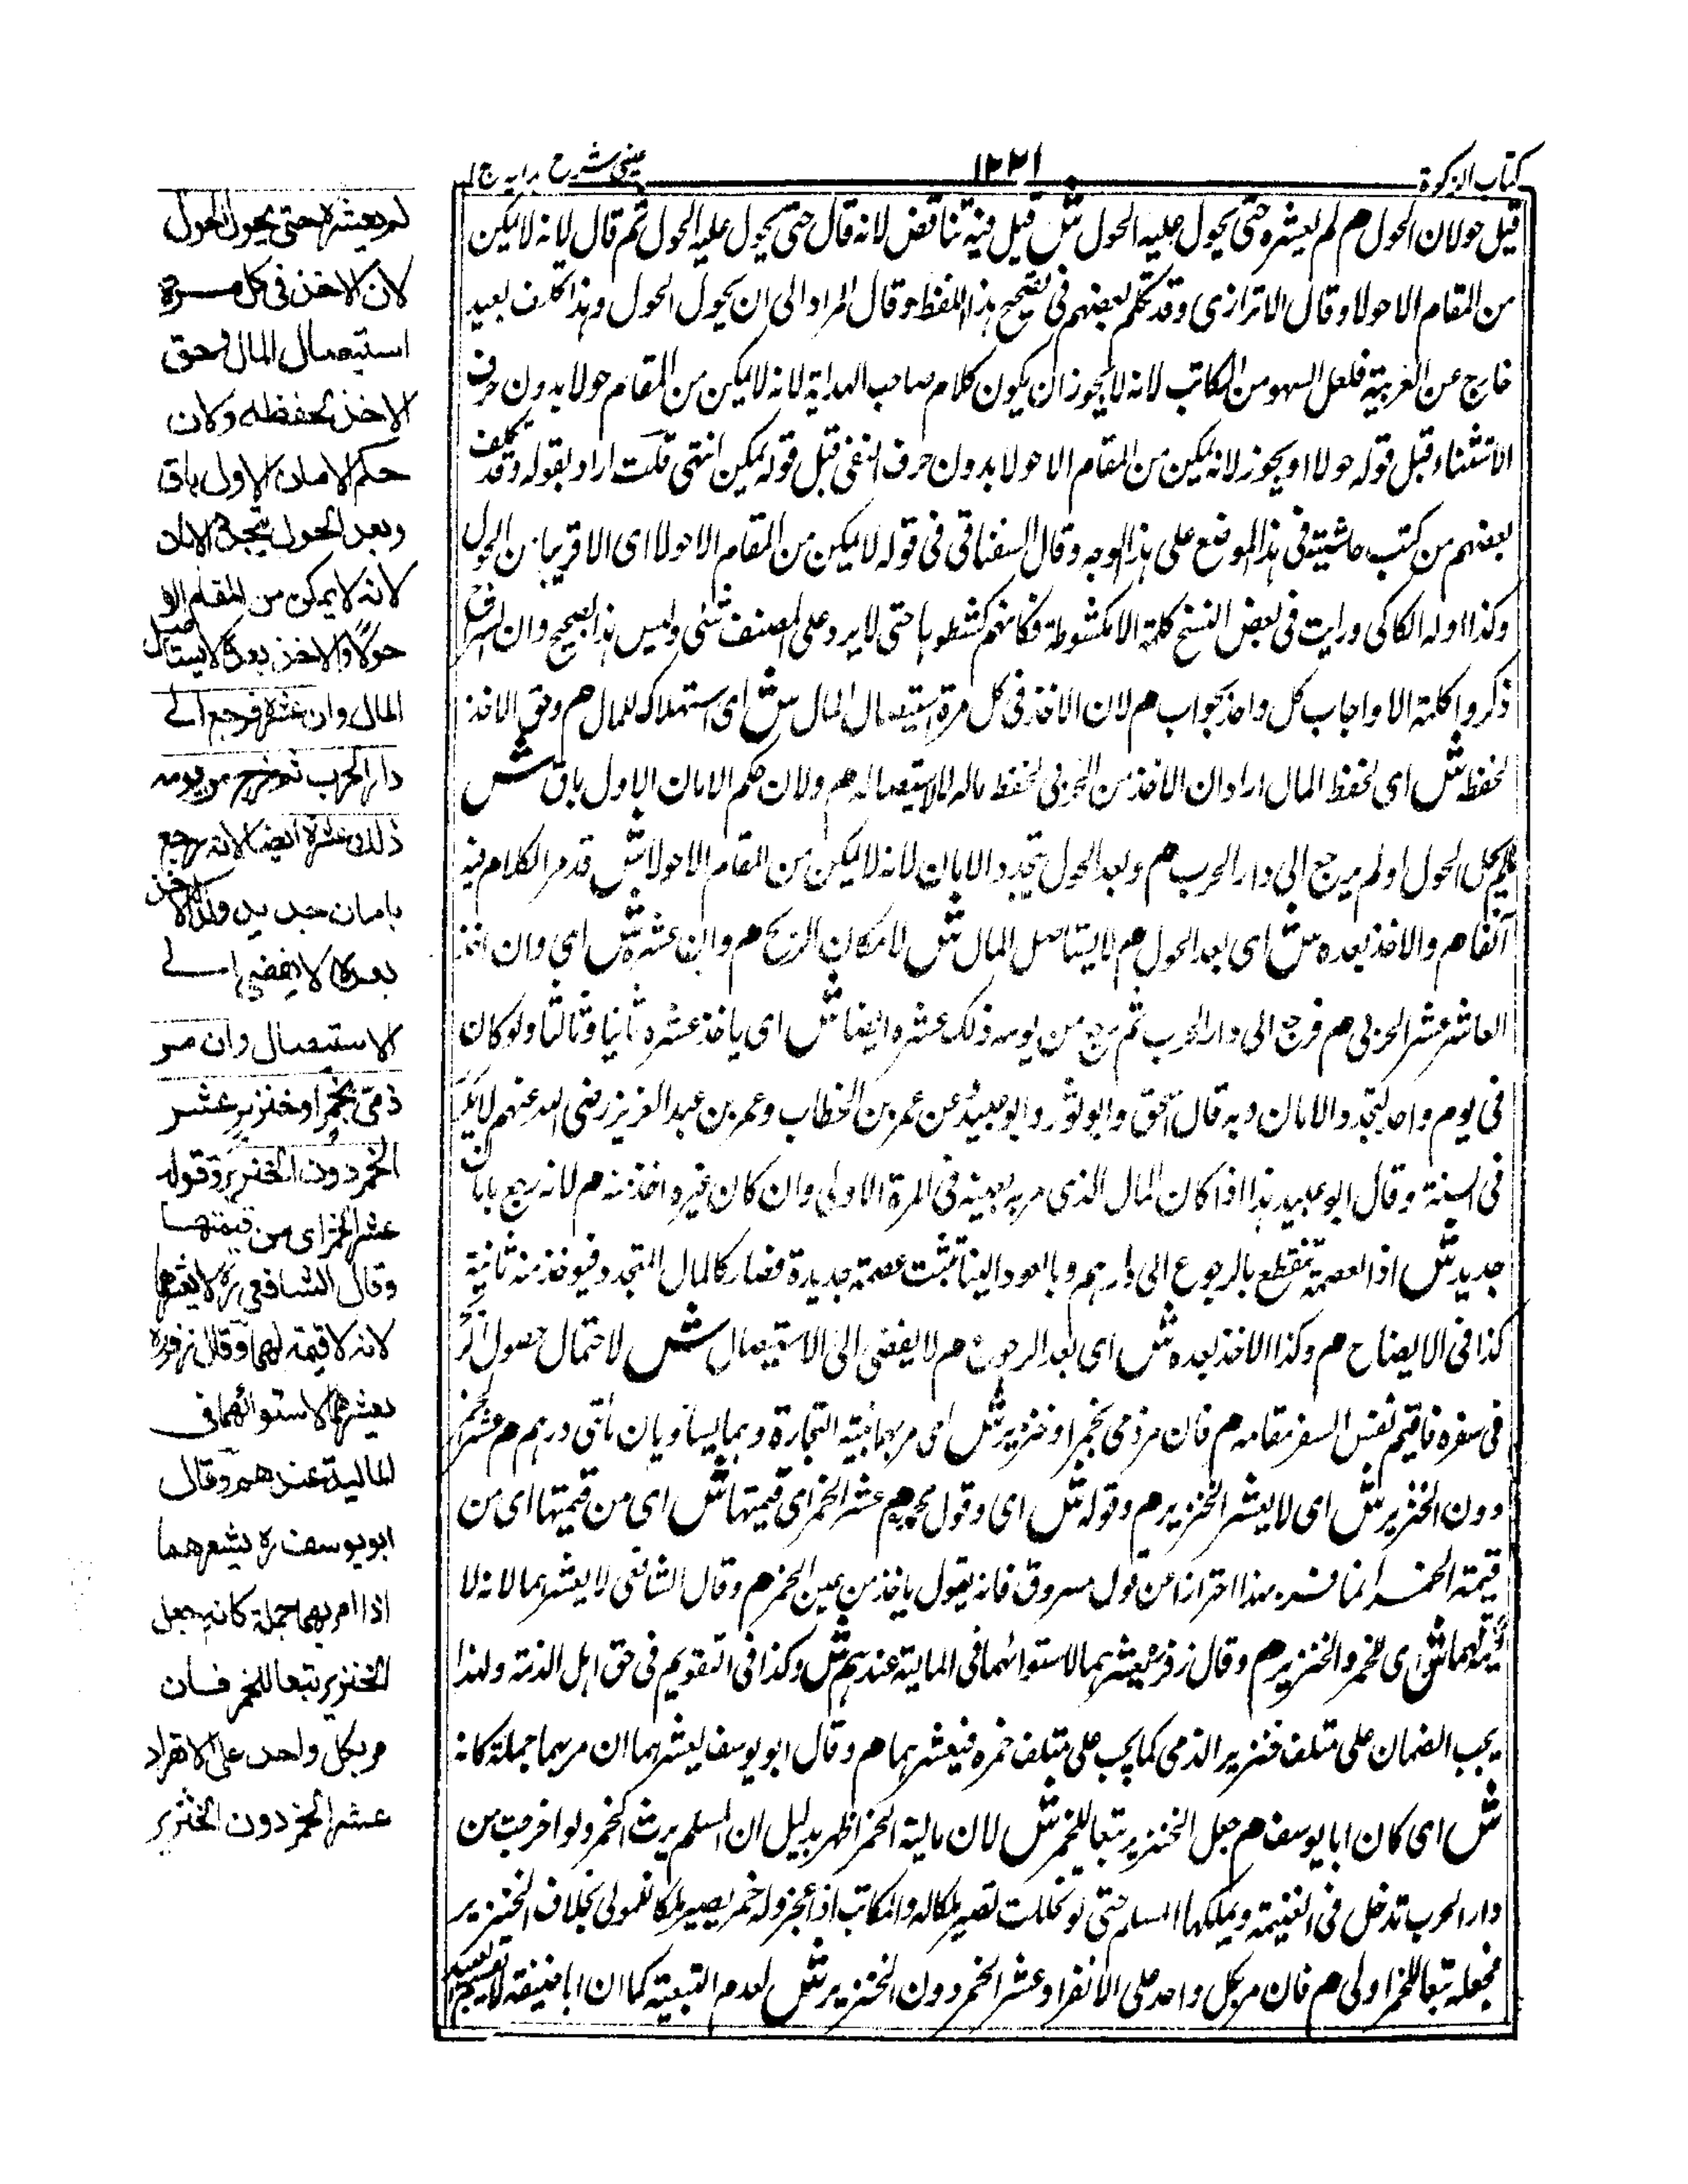 كتاب الزكوة
١٢٢١
عينى شرح هدايه ج ١
قبل حولان الحول م لم يعشره حتى يحول عليه الحول ش قيل فيه تناقض لانه قال حتى يحول عليه الحول ثم قال لانه لا يمكن
من المقام الا حولا وقال الاترازى وقد تكلم بعضهم فى تصحيح هذا اللفظ وقال المراد الى ان يحول الحول وهذا تكلف بعيد
خارج عن العربية فلعل السهو من الكاتب لانه لا يجوز ان يكون كلام صاحب الهداية لانه لا يمكن من المقام حولا بدون حرف
الاستثناء قبل قوله حولا او يجوز لانه يمكن من المقام الا حولا بدون حرف النفى قبل قوله يمكن انتهى قلت اراد بقوله وقد تكلف
بعضهم من كتب حاشيته فى هذا الموضع على هذا الوجه وقال السغناقى فى قوله لا يمكن من المقام الا حولا اى الا قريبا من الحول
وكذا اوله الكاكى ورايت فى بعض النسخ كلمة الا مكشوطة فكانهم كشطوها حتى لا يرد على المصنف شئ وليس هذا بصحيح وان الشراح
ذكروا كلمة الا واجاب كل واحد بجواب م لان الاخذ فى كل مرة استيصال المال ش اى استهلاك للمال م وحق الاخذ
لحفظه ش اى لحفظ المال اراد ان الاخذ من الحربى لحفظ ماله لا لاستيصاله م ولان حكم الامان الاول باق ش
لم يحل الحول او لم يرجع الى دار الحرب م وبعد الحول يتجدد الامان لانه لا يمكن من المقام الا حولا ش قد مر الكلام فيه
آنفا م والاخذ بعده ش اى بعد الحول م لا يستاصل المال ش لامكان الربح م وان عشره ش اى وان اخذ
العاشر عشر الحربى م فرجع الى دار الحرب ثم رجع من يومه ذلك عشره ايضا ش اى ياخذ عشره ثانيا وثالثا ولو كان
فى يوم واحد لتجدد الامان وبه قال اسحق وابو ثور وابو عبيد عن عمر بن الخطاب وعمر بن عبد العزيز رضى الله عنهم لا يتكرر
فى السنة وقال ابو عبيد هذا اذا كان المال الذى مر به بعينه فى المرة الاولى وان كان غيره اخذ منه م لانه رجع بامان
جديد ش اذ العصمة تنقطع بالرجوع الى دارهم وبالعود الينا تثبت عصمة جديدة فصار كالمال المتجدد فيؤخذ منه ثانية
كذا فى الايضاح م وكذا الاخذ بعده ش اى بعد الرجوع م لا يفضى الى الاستيصال ش لاحتمال حصول الربح
فى سفره فاقيم نفس السفر مقامه م فان مر ذمى بخمر او خنزير ش اى مر بهما بنية التجارة وهما يساويان مأتى درهم م عشر الخمر
دون الخنزير ش اى لا يعشر الخنزير م وقوله ش اى وقول محمد م عشر الخمر اى قيمتها ش اى من قيمتها اى من
قيمة الخمر انما فسره بهذا احترازا عن قول مسروق فانه يقول ياخذ من عين الخمر م وقال الشافعى لا يعشرهما لانه لا
قيمة لهما ش اى للخمر والخنزير م وقال زفر يعشرهما لاستوائهما فى المالية عندهم ش وكذا فى التقويم فى حق اهل الذمة ولهذا
يجب الضمان على متلف خنزير الذمى كما يجب على متلف خمره فيعشرهما م وقال ابو يوسف يعشرهما ان مر بهما جملة كانه
ش اى كان ابا يوسف م جعل الخنزير تبعا للخمر ش لان مالية الخمر اظهر بدليل ان المسلم يرث الخمر ولو اخرجت من
دار الحرب تدخل فى الغنيمة ويملكها المسلم حتى لو تخللت تصير ملكا له والمكاتب اذا عجز وله خمر يصير ملكا للمولى بخلاف الخنزير
فجعله تبعا للخمر اولى م فان مر بكل واحد على الانفراد عشر الخمر دون الخنزير ش لعدم التبعية كما ان ابا حنيفة
لم يعشره حتى يحول الحول
لان الاخذ فى كل مرة
استيصال المال وحق
الاخذ لحفظه ولان
حكم الامان الاول باق
وبعد الحول يتجدد الامان
لانه لا يمكن من المقام الا
حولا والاخذ بعده لا يستاصل
المال وان عشره فرجع الے
دار الحرب ثم خرج من يومه
ذلك عشره ايضا لانه رجع
بامان جديد وكذا الاخذ
بعده لا يفضى الے
الاستيصال وان مر
ذمى بخمر او خنزير عشر
الخمر دون الخنزير وقوله
عشر الخمر اى من قيمتها
وقال الشافعى ره لا يعشرهما
لانه لا قيمة لهما وقال زفر ره
يعشرهما لاستوائهما فى
المالية عندهم وقال
ابو يوسف ره يعشرهما
اذا مر بهما جملة كانه جعل
الخنزير تبعا للخمر فان
مر بكل واحد على الانفراد
عشر الخمر دون الخنزير